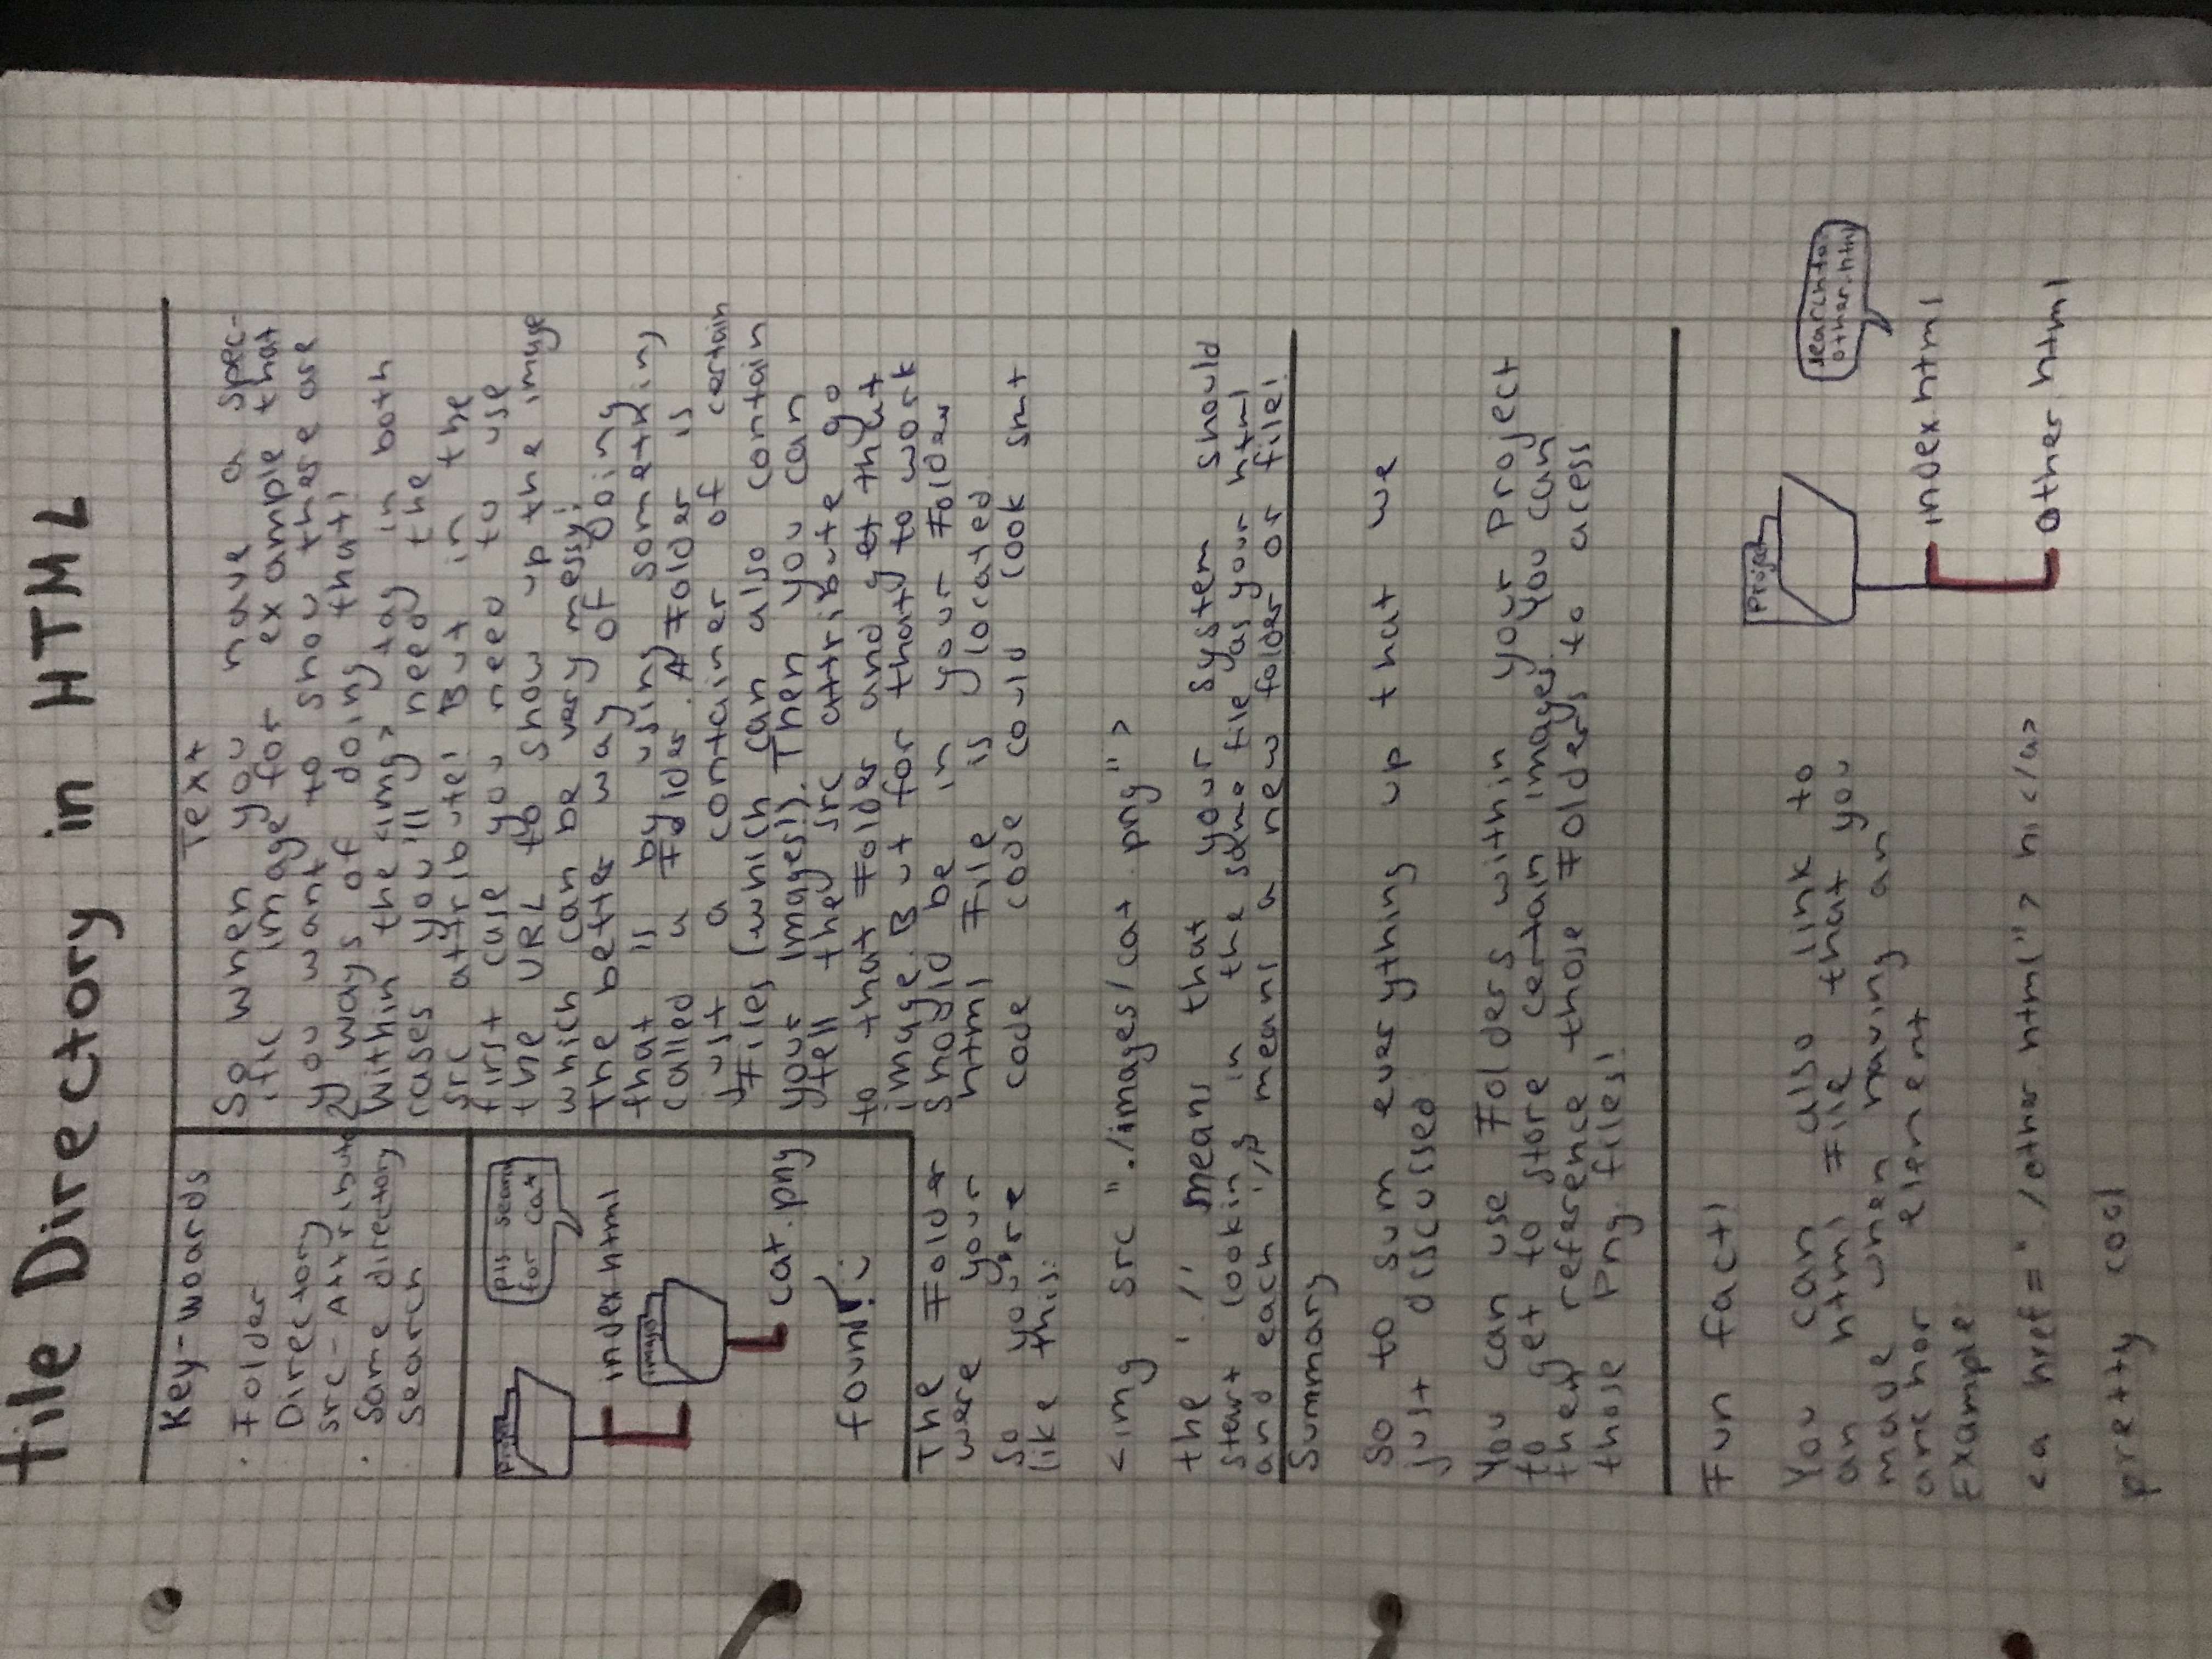 File Directory in HTML
Key-woards
· Folder
Directory
src-Attribute
· Same directory
search
Project
pls search
for cat
index.html
images
cat.png
found!
Text
So when you have a spec-
ific image for example that
you want to show there are
2 ways of doing that!
Within the <img> tag in both
cases you'll need the
src attribute! But in the
first case you need to use
the URL to show up the image
which can be very messy!
The better way of doing
that is by using something
called a Folder. A Folder is
just a container of certain
Files (which can also contain
your Images!). Then you can
tell the src attribute go
to that Folder and get that
image. But for that to work
The Folder should be in your Folder
were your html File is located.
So you're code code could look smt
like this:
<img src "./images/cat.png">
the './' means that your system should
start looking in the same file as your html
and each '/' means a new folder or file!
Summary
So to sum everything up that we
just discussed
You can use Folders within your Project
to get to store certain images. You can
then reference those Folders to acess
those Png files!
Fun fact!
You can also link to
an html File that you
made when having an
anchor element
Example:
<a href="./other.html"> hi </a>
pretty cool
Project
search for
other.html
index.html
other.html